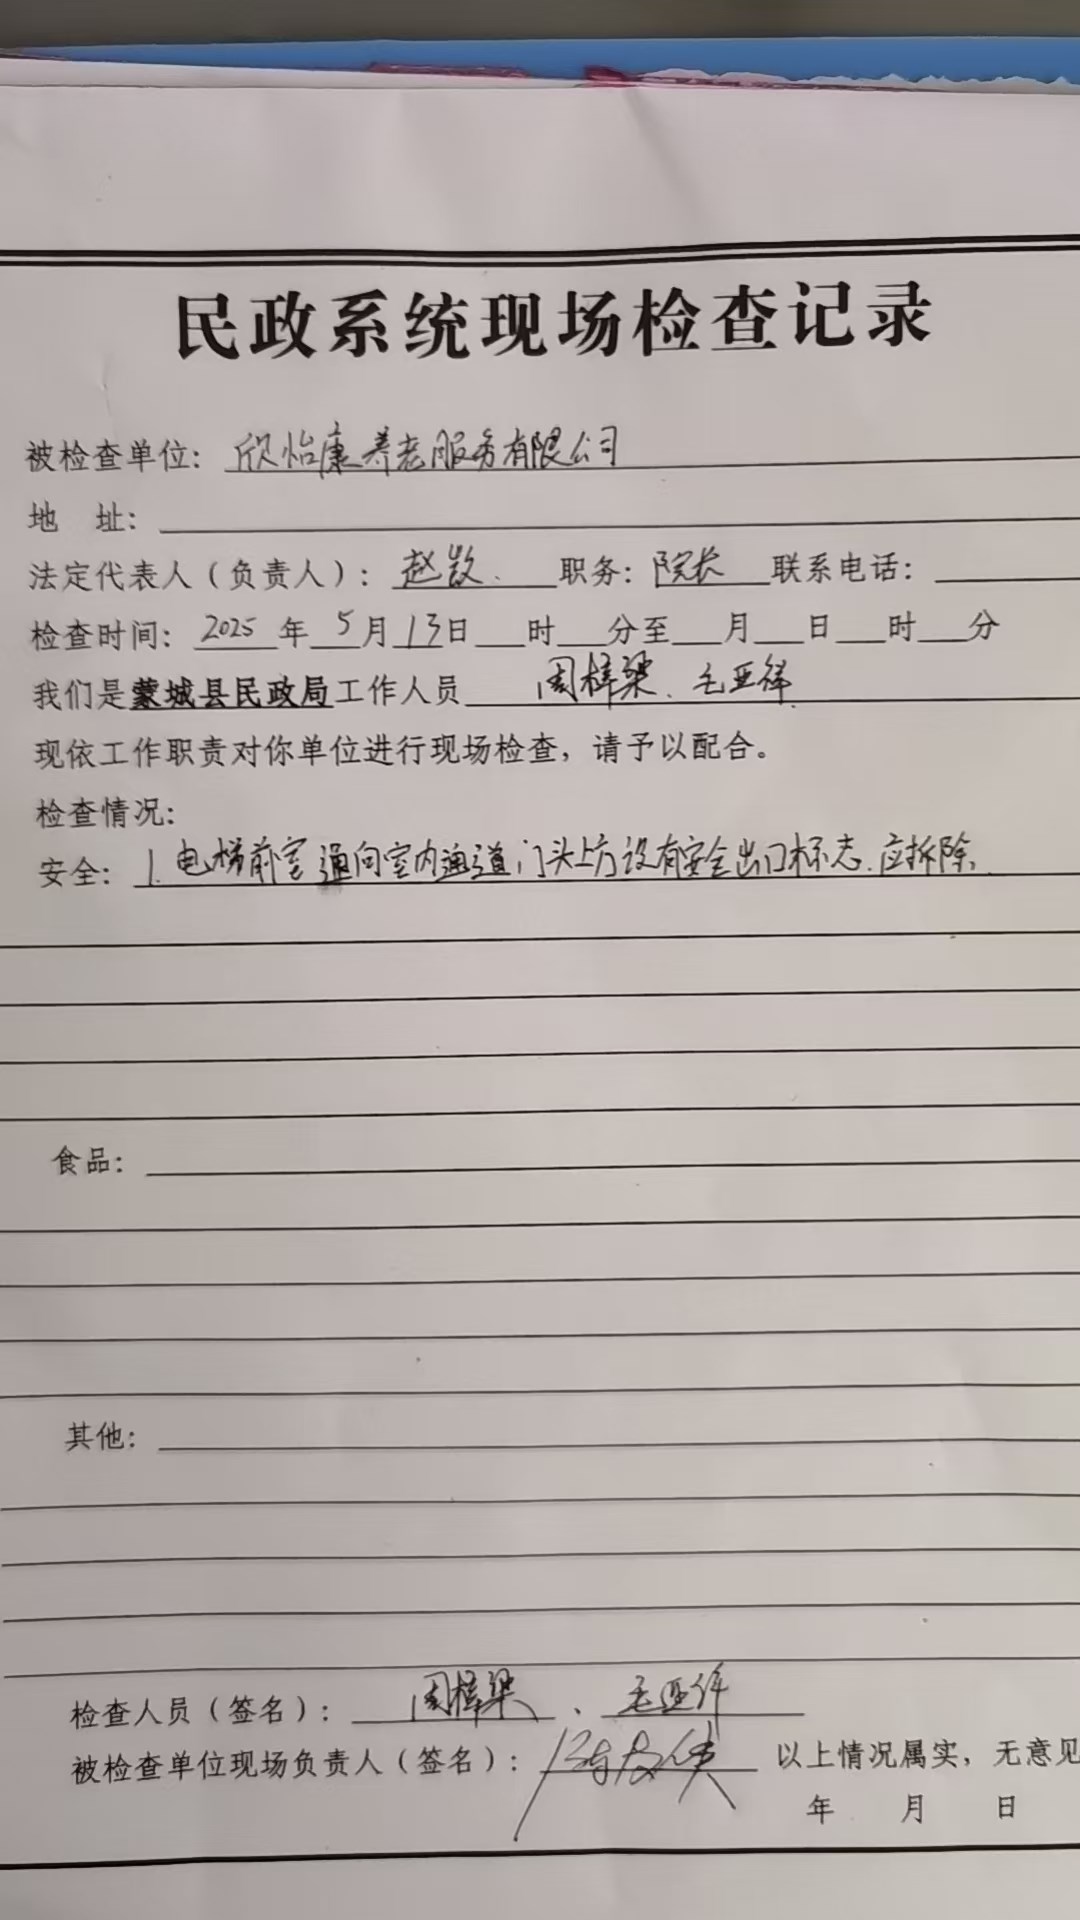 民政系统现场检查记录
被检查单位：欣怡康养老服务有限公司
地 址：
法定代表人（负责人）：赵 职务：院长 联系电话：
检查时间：2025年5月13日 时 分至 月 日 时 分
我们是蒙城县民政局工作人员 周梓梁、毛亚
现依工作职责对你单位进行现场检查，请予以配合。
检查情况：
安全：1.电梯前室通向室内通道门头上方设有安全出口标志.应拆除.
食品：
其他：
检查人员（签名）：周梓梁、毛亚
被检查单位现场负责人（签名）： 以上情况属实，无意见
年 月 日